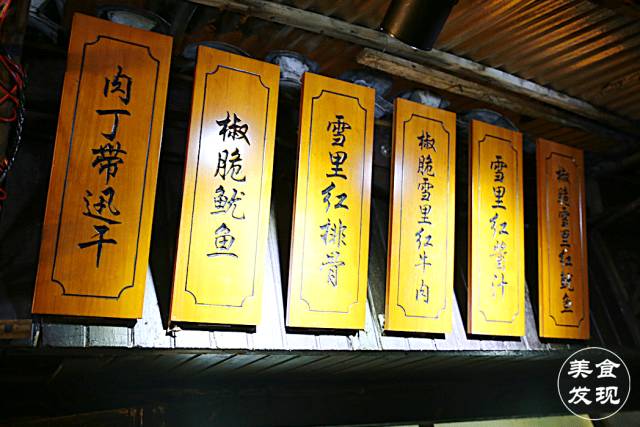 肉丁带迅干
椒脆鱿鱼
雪里红排骨
椒脆雪里红牛肉
雪里红酱汁
椒脆雪里红鱿鱼
美食
发现